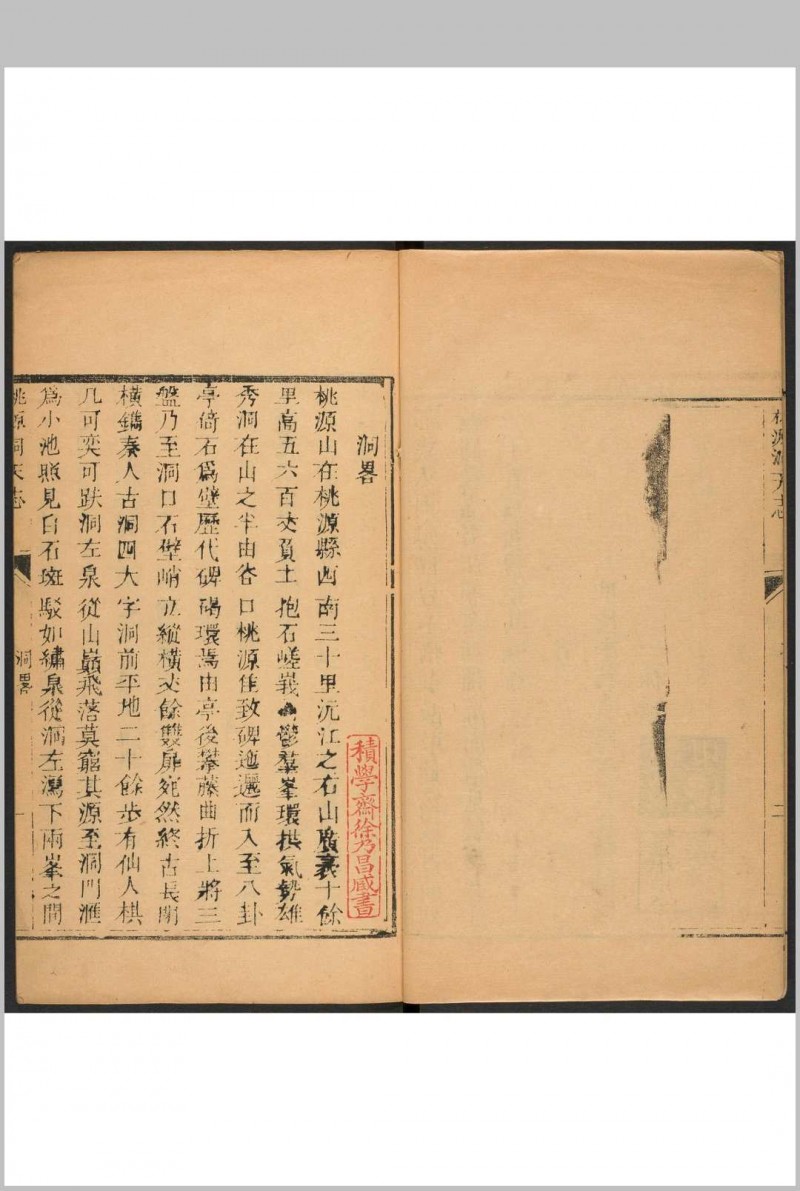 桃源洞天志
二
洞畧
桃源山在桃源縣西南三十里沅江之右山廣袤十餘
里高五六百丈負土抱石嵯峩鬱羣峯環拱氣勢雄
秀洞在山之半由谷口桃源佳致碑迤邐而入至八卦
亭倚石爲壁歷代碑碣環焉由亭後攀藤曲折上將三
盤乃至洞口石壁峭立縱橫丈餘雙扉宛然終古長閉
橫鐫秦人古洞四大字洞前平地二十餘步有仙人棋
几可奕可趺洞左泉從山巔飛落莫窮其源至洞門滙
爲小池照見白石斑駁如繡泉從洞左瀉下兩峯之間
積學齋徐乃昌藏書
桃源洞天志
洞畧
一